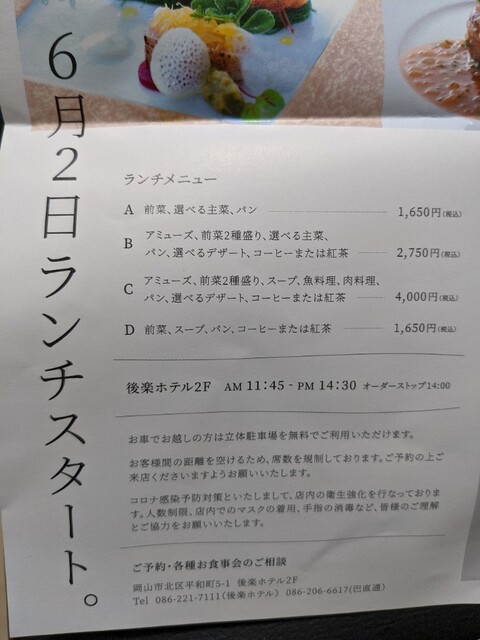 6月2日ランチスタート。
ランチメニュー
A 前菜、選べる主菜、パン 1,650円(税込)
B アミューズ、前菜2種盛り、選べる主菜、
パン、選べるデザート、コーヒーまたは紅茶 2,750円(税込)
C アミューズ、前菜2種盛り、スープ、魚料理、肉料理、
パン、選べるデザート、コーヒーまたは紅茶 4,000円(税込)
D 前菜、スープ、パン、コーヒーまたは紅茶 1,650円(税込)
後楽ホテル2F AM 11:45 - PM 14:30 オーダーストップ14:00
お車でお越しの方は立体駐車場を無料でご利用いただけます。
お客様間の距離を空けるため、席数を規制しております。ご予約の上ご
来店くださいますようお願いいたします。
コロナ感染予防対策といたしまして、店内の衛生強化を行なっておりま
す。人数制限、店内でのマスクの着用、手指の消毒など、皆様のご理解
とご協力をお願いいたします。
ご予約・各種お食事会のご相談
岡山市北区平和町5-1 後楽ホテル2F
Tel 086-221-7111(後楽ホテル) 086-206-6617(巴直通)